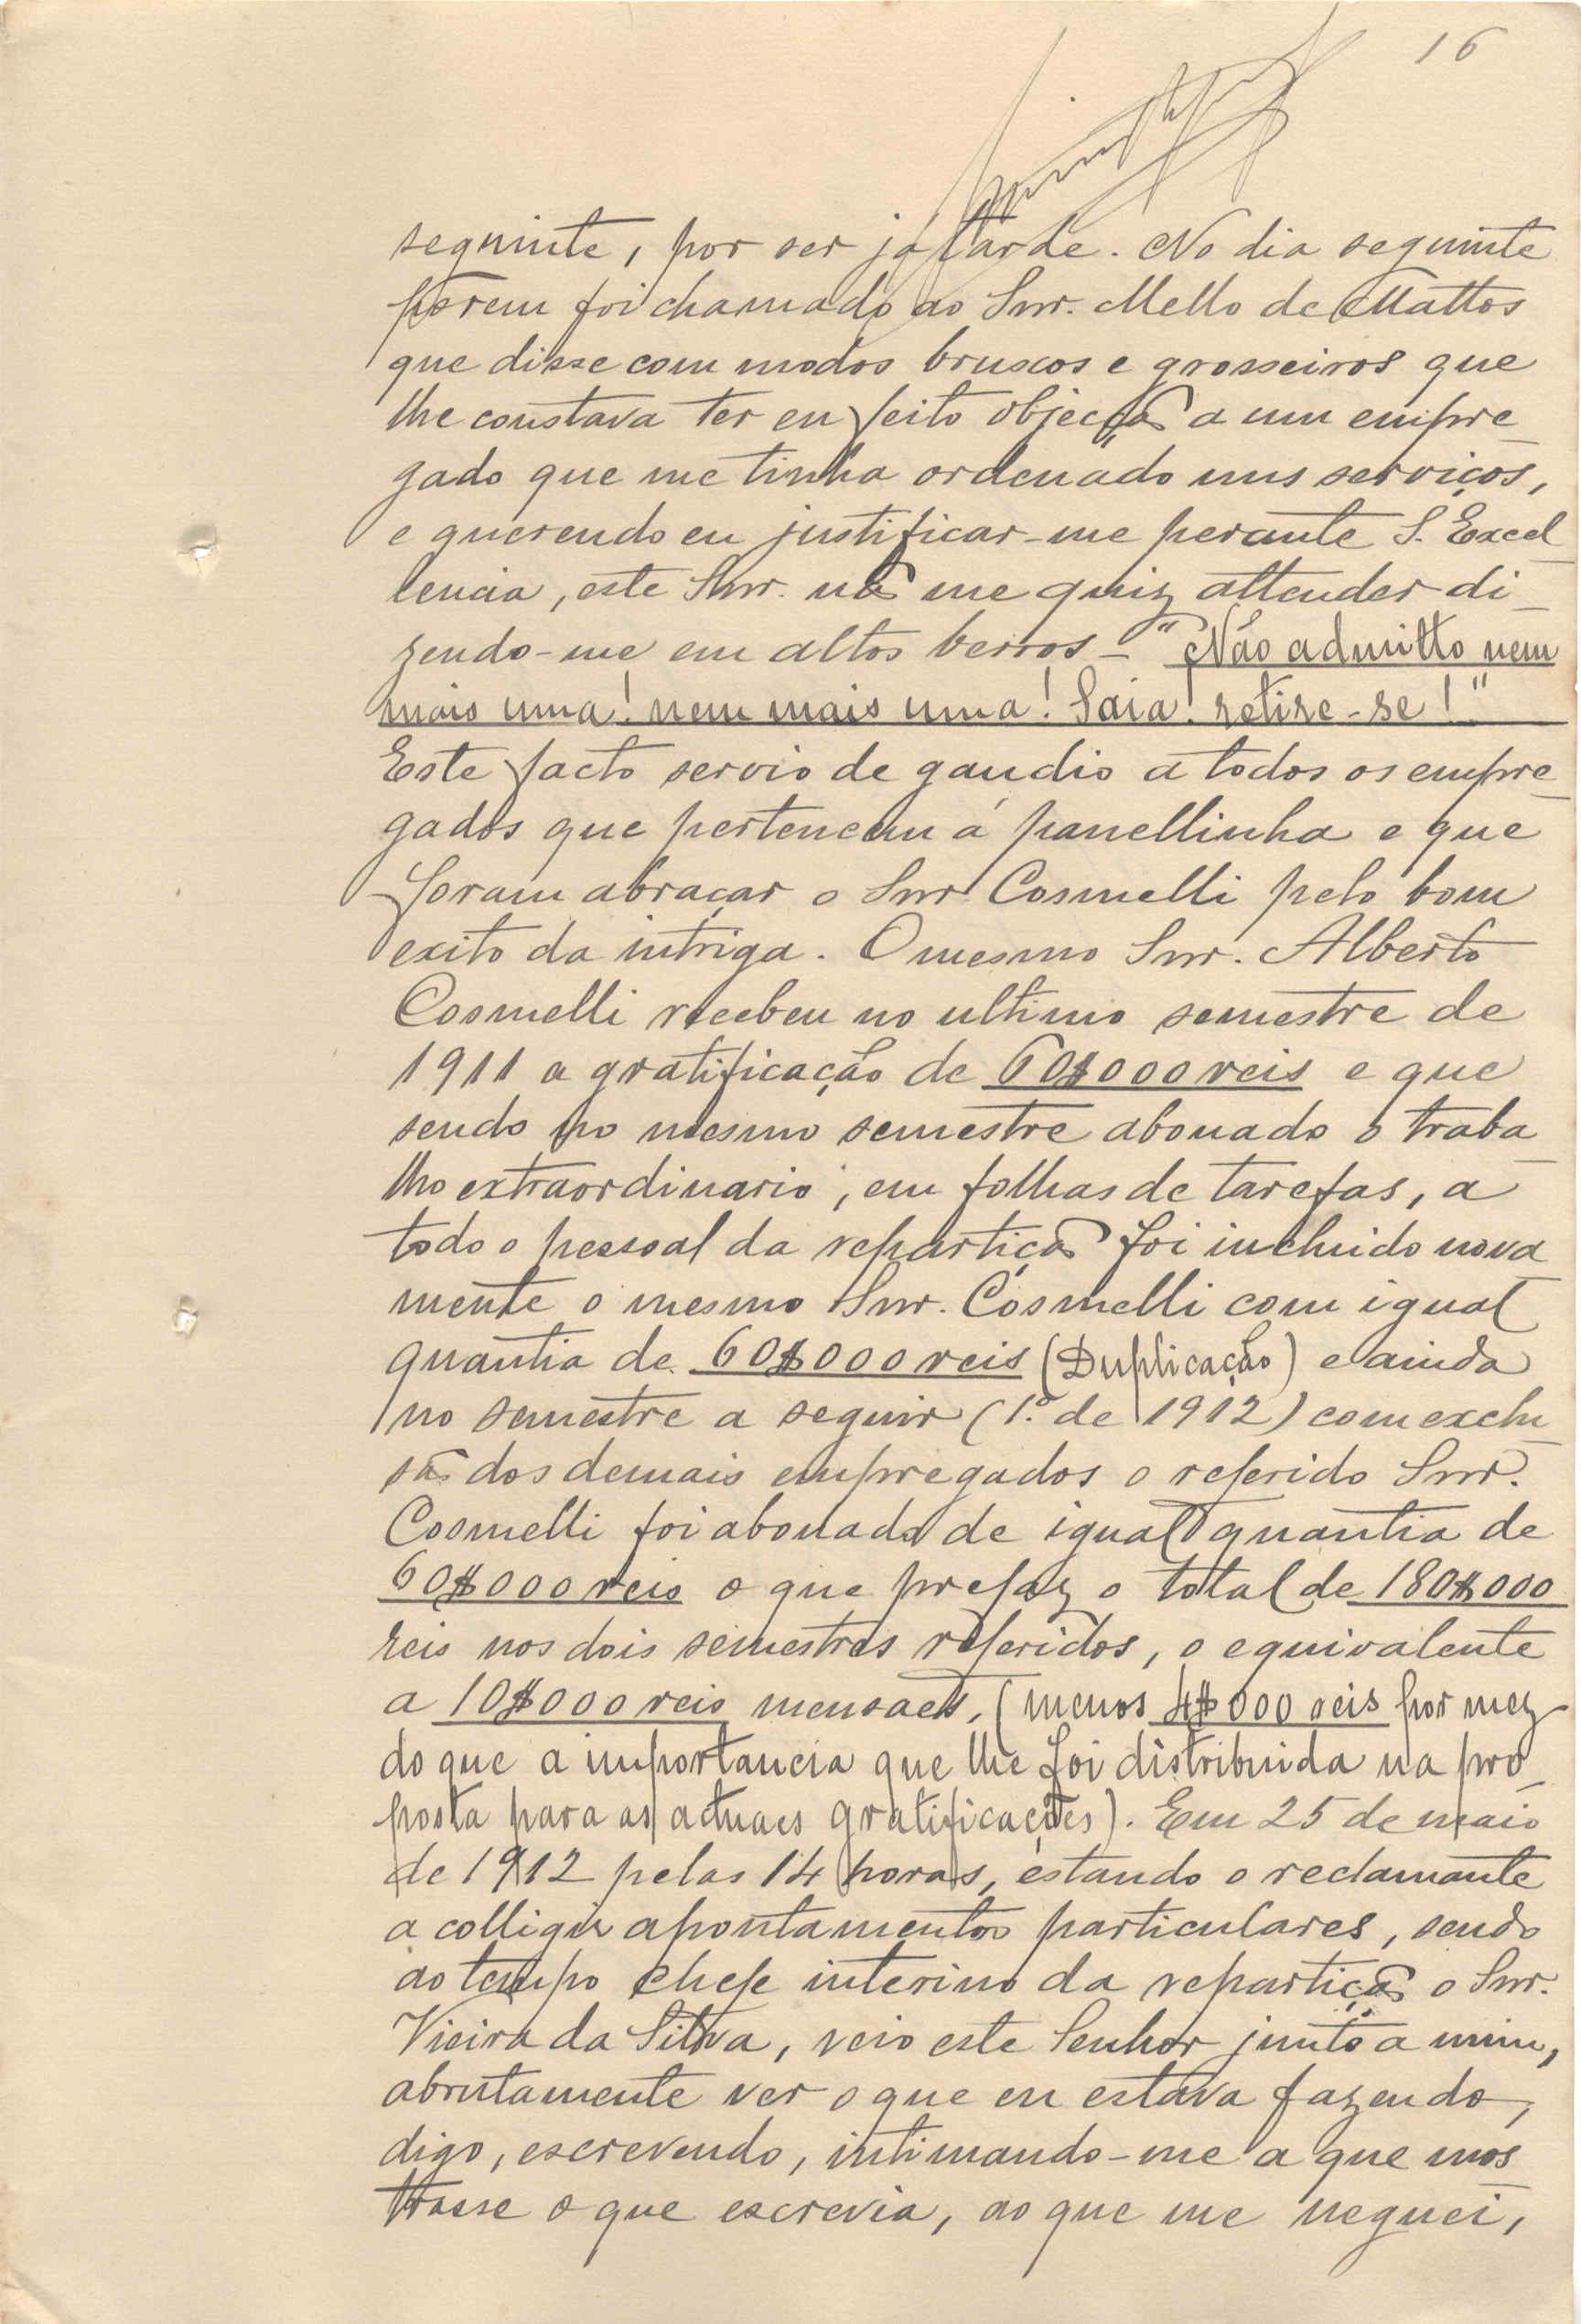 16
seguinte, por ser já tarde. No dia seguinte
porem foi chamado ao Snr. Mello de Mattos
que disse com modos bruscos e grosseiros que
lhe constava ter eu feito objecção a um empre_
gado que me tinha ordenado uns serviços,
e querendo eu justificar-me perante S. Excel_
lencia, este Snr. não me quiz attender di_
zendo-me em altos berros - "Não admitto nem
mais uma! nem mais uma! Saia! retire-se!"
Este facto servio de gaudio a todos os empre_
gados que pertencem á panellinha e que
foram abraçar o Snr. Cosmelli pelo bom
exito da intriga. O mesmo Snr. Alberto
Cosmelli recebeu no ultimo semestre de
1911 a gratificação de 60$000 reis e que
sendo no mesmo semestre abonado o traba_
lho extraordinario, em folhas de tarefas, a
todo o pessoal da repartição foi incluido nova_
mente o mesmo Snr. Cosmelli com igual
quantia de 60$000 reis (Duplicação) e ainda
no semestre a seguir (1.º de 1912) com exclu_
são dos demais empregados o referido Snr.
Cosmelli foi abonado de igual quantia de
60$000 reis o que prefaz o total de 180$000
reis nos dois semestres referidos, o equivalente
a 10$000 reis mensaes, (menos 4$000 reis por mez
do que a importancia que lhe foi distribuida na pro_
posta para as actuaes gratificações). Em 25 de maio
de 1912 pelas 14 horas, estando o reclamante
a colligir apontamentos particulares, sendo
ao tempo chefe interino da repartição o Snr.
Vieira da Silva, veio este Senhor junto a mim,
abrutamente ver o que eu estava fazendo,
digo, escrevendo, intimando-me a que mos_
trasse o que escrevia, ao que me neguei,